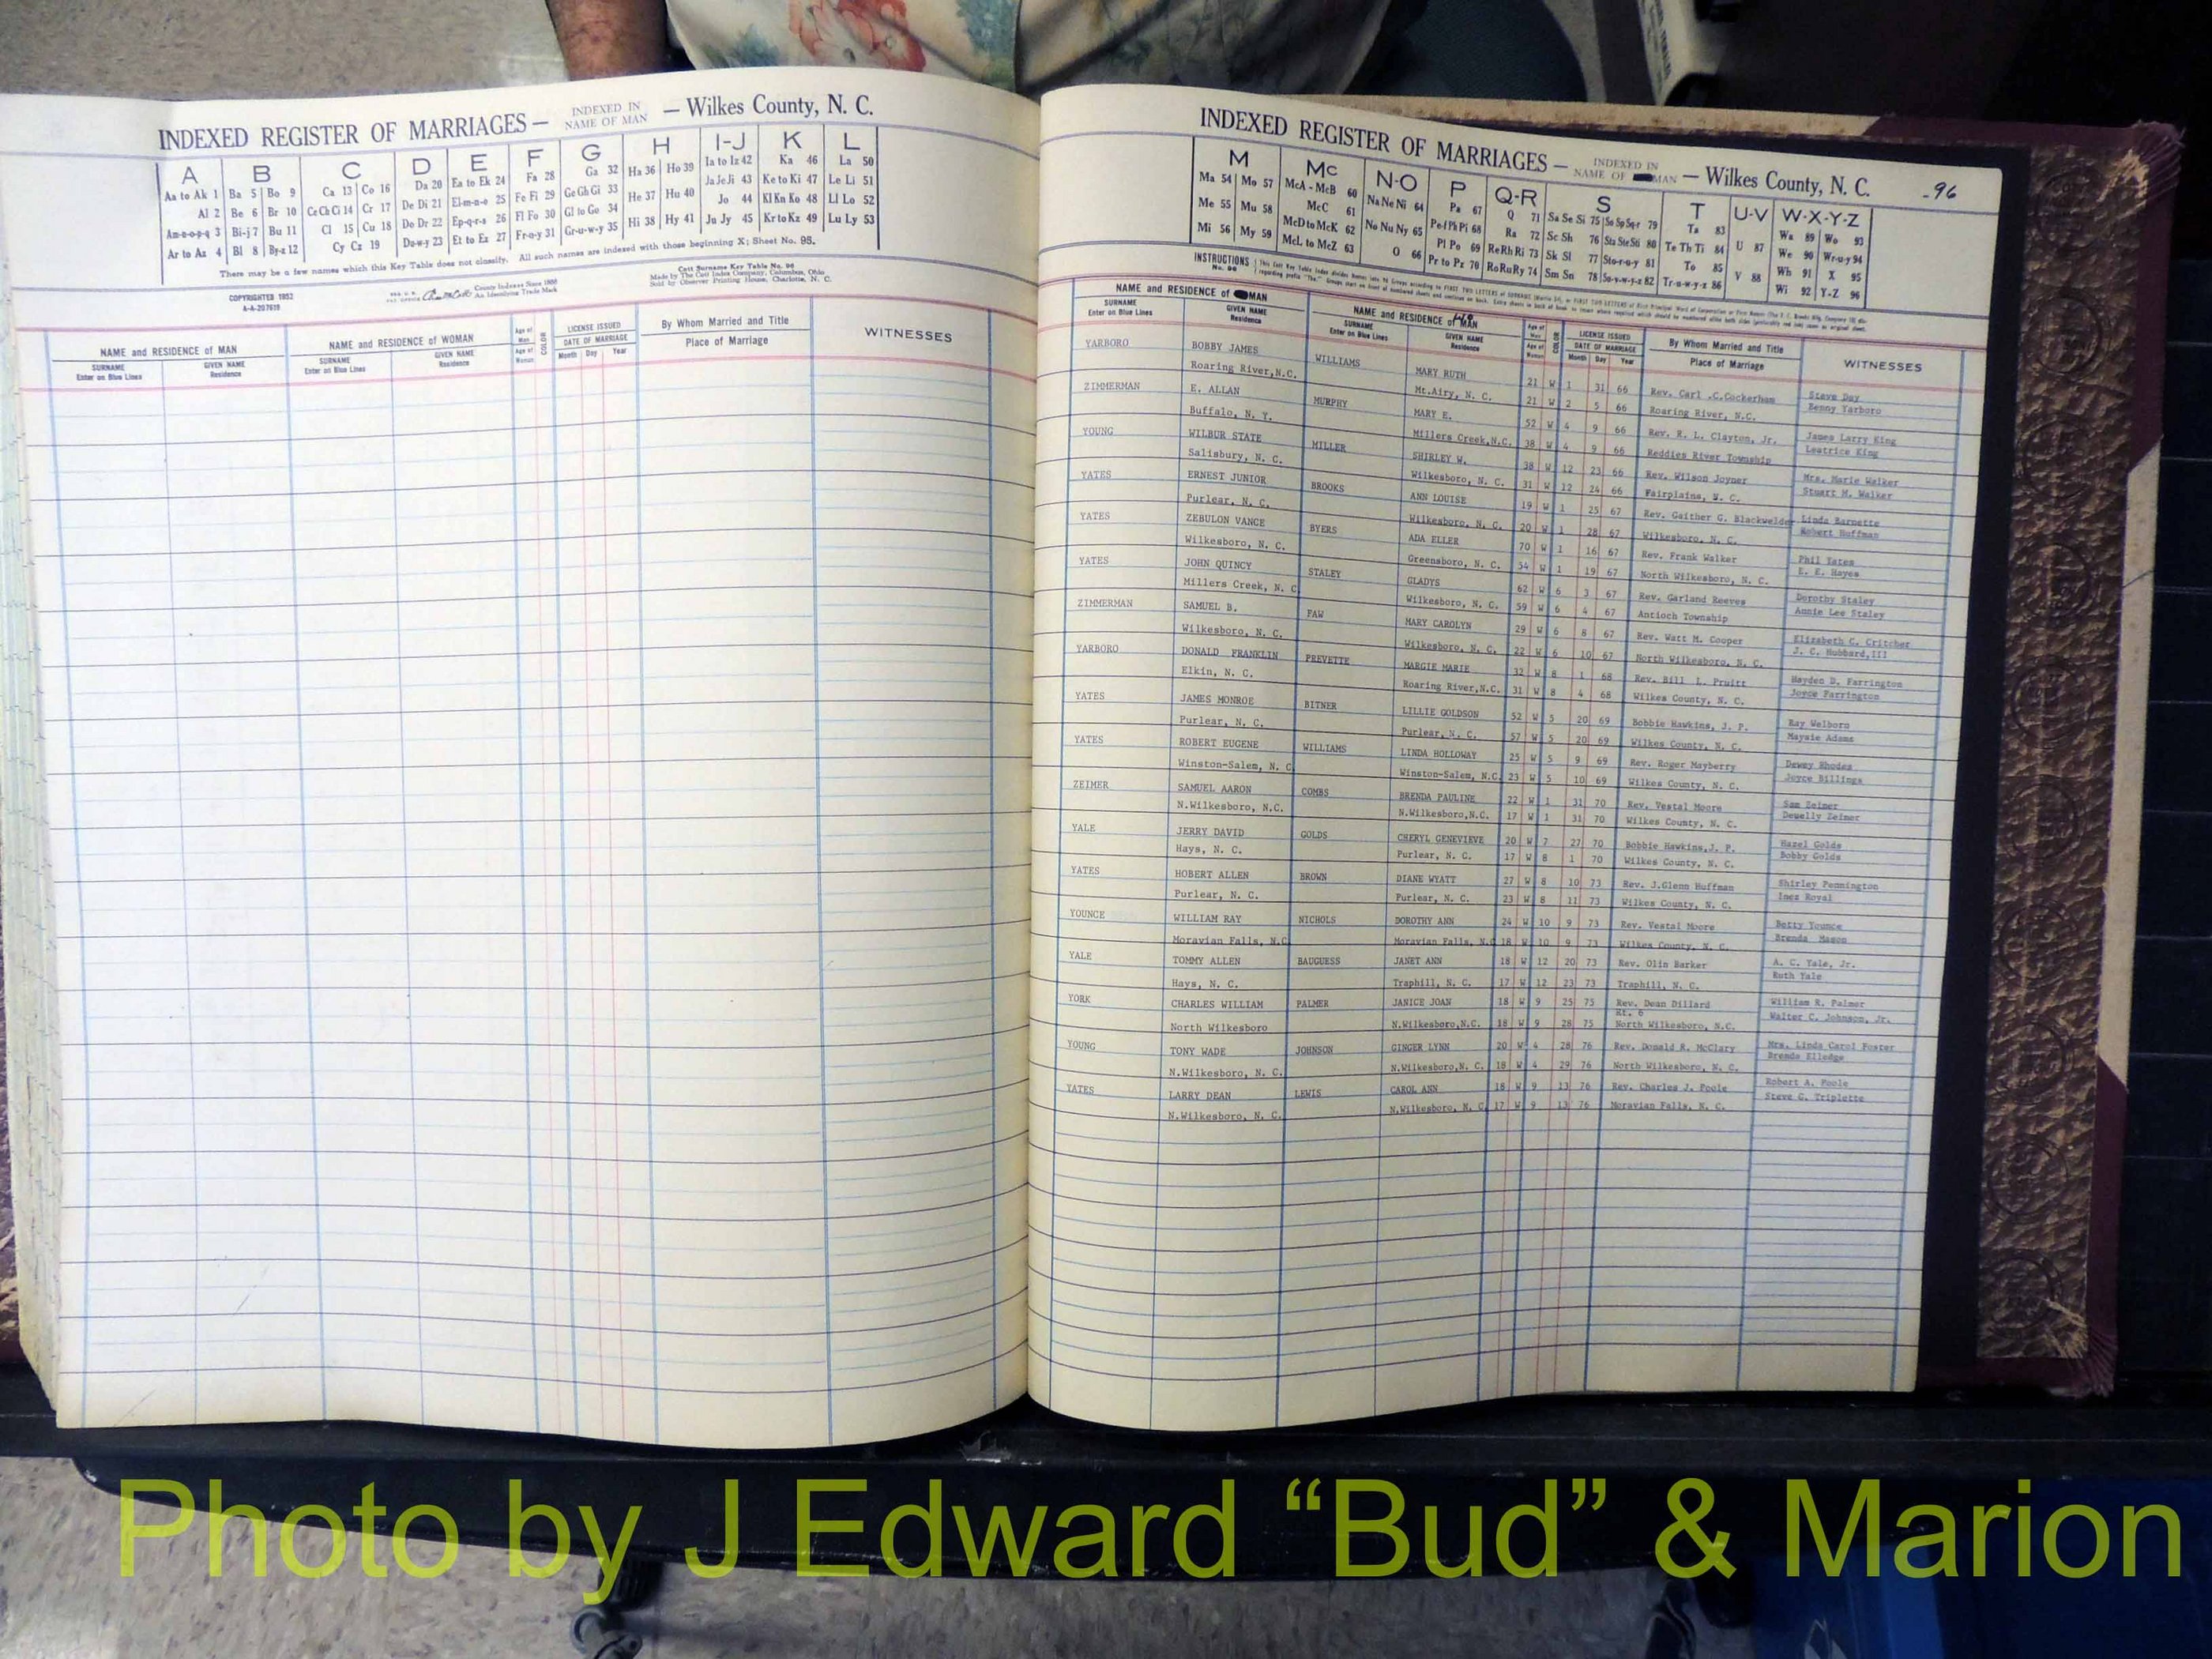 INDEXED REGISTER OF MARRIAGES — INDEXED IN NAME OF MAN — Wilkes County, N. C.
A B C D E F G H I-J K L
Aa to Ak 1 Ba 5 Bo 9 Ca 13 Co 16 Da 20 Ea to Ek 24 Fa 28 Ga 32 Ha 36 Ho 39 Ia to Iz 42 Ka 46 La 50
Al 2 Be 6 Br 10 Ce Ch Ci 14 Cr 17 De Di 21 El-m-n-o 25 Fe Fi 29 Ge Gh Gi 33 He 37 Hu 40 Ja Je Ji 43 Ke to Ki 47 Le Li 51
Am-n-o-p-q 3 Bi-j 7 Bu 11 Cl 15 Cu 18 Do Dr 22 Ep-q-r-s 26 Fl Fo 30 Gl to Go 34 Hi 38 Hy 41 Jo 44 Kl Kn Ko 48 Ll Lo 52
Ar to Az 4 Bl 8 By-z 12 Cy Cz 19 Du-w-y 23 Et to Ez 27 Fr-u-y 31 Gr-u-w-y 35 Ju Jy 45 Kr to Kz 49 Lu Ly 53
There may be a few names which this Key Table does not classify. All such names are indexed with those beginning X; Sheet No. 95.
COPYRIGHTED 1952
A-A-207619
County Indexes Since 1888
An Identifying Trade Mark
Cott Surname Key Table No. 96
Made by The Cott Index Company, Columbus, Ohio
Sold by Observer Printing House, Charlotte, N. C.
NAME and RESIDENCE of MAN NAME and RESIDENCE of WOMAN Age of Man COLOR LICENSE ISSUED By Whom Married and Title WITNESSES
SURNAME GIVEN NAME SURNAME GIVEN NAME Age of Woman DATE OF MARRIAGE Place of Marriage
Enter on Blue Lines Residence Enter on Blue Lines Residence Month Day Year
INDEXED REGISTER OF MARRIAGES — INDEXED IN NAME OF MAN — Wilkes County, N. C. 96
M Mc N-O P Q-R S T U-V W-X-Y-Z
Ma 54 Mo 57 McA - McB 60 Na Ne Ni 64 Pa 67 Q 71 Sa Se Si 75 So Sp Sq-r 79 Ta 83 Wa 89 Wo 93
Me 55 Mu 58 McC 61 No Nu Ny 65 Pe-f Ph Pi 68 Ra 72 Sc Sh 76 Sta Ste Sti 80 Te Th Ti 84 U 87 We 90 Wr-u-y 94
Mi 56 My 59 McD to McK 62 O 66 Pl Po 69 Re Rh Ri 73 Sk Sl 77 Sto-r-u-y 81 To 85 V 88 Wh 91 X 95
McL to McZ 63 Pr to Pz 70 Ro Ru Ry 74 Sm Sn 78 Su-v-w-y-z 82 Tr-u-w-y-z 86 Wi 92 Y-Z 96
INSTRUCTIONS
No. 96
NAME and RESIDENCE of MAN NAME and RESIDENCE of MAN Age of Man COLOR LICENSE ISSUED By Whom Married and Title WITNESSES
SURNAME GIVEN NAME SURNAME GIVEN NAME Age of DATE OF MARRIAGE Place of Marriage
Enter on Blue Lines Residence Enter on Blue Lines Residence Month Day Year
YARBORO BOBBY JAMES WILLIAMS MARY RUTH 21 W 1 31 66 Rev. Carl .C.Cockerham Steve Day
Roaring River,N.C. Mt.Airy, N. C. 21 W 2 5 66 Roaring River, N.C. Benny Yarboro
ZIMMERMAN E. ALLAN MURPHY MARY E. 52 W 4 9 66 Rev. R. L. Clayton, Jr. James Larry King
Buffalo, N. Y. Millers Creek,N.C. 38 W 4 9 66 Reddies River Township Leatrice King
YOUNG WILBUR STATE MILLER SHIRLEY W. 38 W 12 23 66 Rev. Wilson Joyner Mrs. Marie Walker
Salisbury, N. C. Wilkesboro, N. C. 31 W 12 24 66 Fairplains, N. C. Stuart M. Walker
YATES ERNEST JUNIOR BROOKS ANN LOUISE 19 W 1 25 67 Rev. Gaither G. Blackwelder Linda Barnette
Purlear, N. C. Wilkesboro, N. C. 20 W 1 28 67 Wilkesboro, N. C. Robert Huffman
YATES ZEBULON VANCE BYERS ADA ELLER 70 W 1 16 67 Rev. Frank Walker Phil Yates
Wilkesboro, N. C. Greensboro, N. C. 54 W 1 19 67 North Wilkesboro, N. C. E. E. Hayes
YATES JOHN QUINCY STALEY GLADYS 62 W 6 3 67 Rev. Garland Reeves Dorothy Staley
Millers Creek, N. C Wilkesboro, N. C. 59 W 6 4 67 Antioch Township Annie Lee Staley
ZIMMERMAN SAMUEL B. FAW MARY CAROLYN 29 W 6 8 67 Rev. Watt M. Cooper Elizabeth C. Critcher
Wilkesboro, N. C. Wilkesboro, N. C. 22 W 6 10 67 North Wilkesboro, N. C. J. C. Hubbard,III
YARBORO DONALD FRANKLIN PREVETTE MARGIE MARIE 32 W 8 1 68 Rev. Bill L. Pruitt Hayden D. Farrington
Elkin, N. C. Roaring River,N.C. 31 W 8 4 68 Wilkes County, N. C. Joyce Farrington
YATES JAMES MONROE BITNER LILLIE GOLDSON 52 W 5 20 69 Bobbie Hawkins, J. P. Ray Welborn
Purlear, N. C. Purlear, N. C. 57 W 5 20 69 Wilkes County, N. C. Maysie Adams
YATES ROBERT EUGENE WILLIAMS LINDA HOLLOWAY 25 W 5 9 69 Rev. Roger Mayberry Dewey Rhodes
Winston-Salem, N. C Winston-Salem, N.C. 23 W 5 10 69 Wilkes County, N. C. Joyce Billings
ZEIMER SAMUEL AARON COMBS BRENDA PAULINE 22 W 1 31 70 Rev. Vestal Moore Sam Zeimer
N.Wilkesboro, N.C. N.Wilkesboro,N.C. 17 W 1 31 70 Wilkes County, N. C. Deuelly Zeimer
YALE JERRY DAVID GOLDS CHERYL GENEVIEVE 20 W 7 27 70 Bobbie Hawkins,J. P. Hazel Golds
Hays, N. C. Purlear, N. C. 17 W 8 1 70 Wilkes County, N. C. Bobby Golds
YATES HOBERT ALLEN BROWN DIANE WYATT 27 W 8 10 73 Rev. J.Glenn Huffman Shirley Pennington
Purlear, N. C. Purlear, N. C. 23 W 8 11 73 Wilkes County, N. C. Inez Royal
YOUNCE WILLIAM RAY NICHOLS DOROTHY ANN 24 W 10 9 73 Rev. Vestal Moore Betty Younce
Moravian Falls, N.C Moravian Falls, N.C 18 W 10 9 73 Wilkes County, N. C. Brenda Mason
YALE TOMMY ALLEN BAUGUESS JANET ANN 18 W 12 20 73 Rev. Olin Barker A. C. Yale, Jr.
Hays, N. C. Traphill, N. C. 17 W 12 23 73 Traphill, N. C. Ruth Yale
YORK CHARLES WILLIAM PALMER JANICE JOAN 18 W 9 25 75 Rev. Dean Dillard William R. Palmer
Rt. 6
North Wilkesboro N.Wilkesboro,N.C. 18 W 9 28 75 North Wilkesboro, N.C. Walter C. Johnson, Jr.
YOUNG TONY WADE JOHNSON GINGER LYNN 20 W 4 28 76 Rev. Donald R. McClary Mrs. Linda Carol Foster
N.Wilkesboro, N. C. N.Wilkesboro,N. C. 18 W 4 29 76 North Wilkesboro, N. C. Brenda Elledge
YATES LARRY DEAN LEWIS CAROL ANN 18 W 9 13 76 Rev. Charles J. Poole Robert A. Poole
N.Wilkesboro, N. C. N.Wilkesboro, N. C. 17 W 9 13 76 Moravian Falls, N. C. Steve G. Triplette
Photo by J Edward “Bud” & Marion